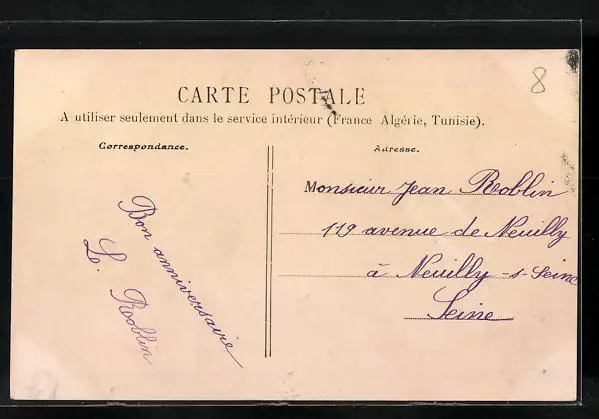 8
CARTE POSTALE
A utiliser seulement dans le service intérieur (France Algérie, Tunisie).
Correspondance.
Adresse.
Bon anniversaire
L. Roblin
Monsieur Jean Roblin
119 avenue de Neuilly
à Neuilly-s-Seine
Seine